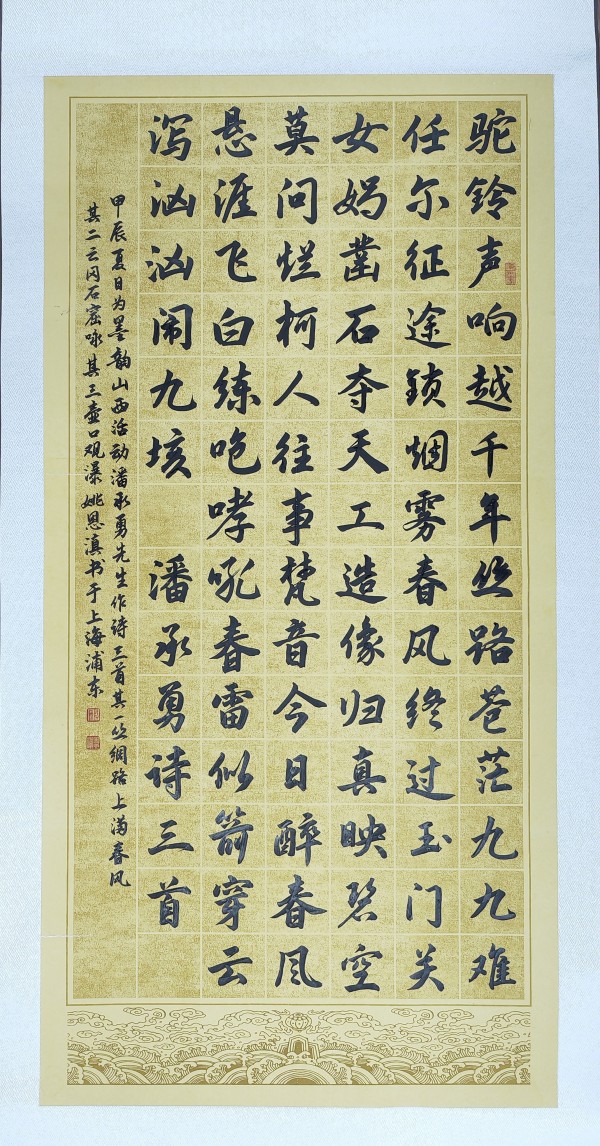 驼铃声响越千年丝路苍茫九九难
任尔征途锁烟雾春风终过玉门关
女娲凿石夺天工造像归真映碧空
莫问烂柯人往事梵音今日醉春风
悬涯飞白练咆哮吼春雷似箭穿云
泻汹汹闹九垓 潘承勇诗三首
甲辰夏日为墨韵山西活动潘承勇先生作诗三首其一丝绸路上满春风
其二云冈石窟咏其三壶口观瀑姚恩滇书于上海浦东